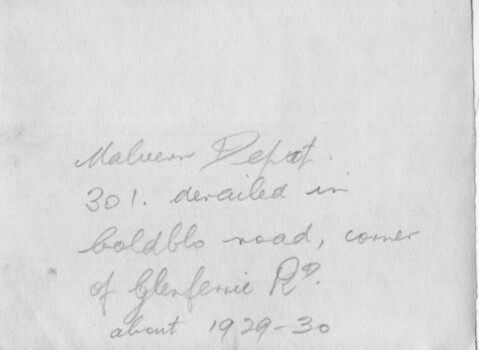 Malvern Depot.
301. derailed in
Coldblo road, corner
of Glenferrie Rd.
about 1929-30